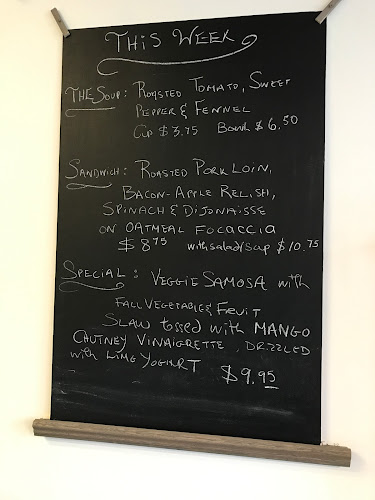 THIS WEEK
THE SOUP: ROASTED TOMATO, SWEET
PEPPER & FENNEL
Cup $3.75 Bowl $6.50
SANDWICH: ROASTED PORK LOIN,
BACON-APPLE RELISH,
SPINACH & DIJONAISSE
ON OATMEAL FOCACCIA
$8.75 with salad/soup $10.75
SPECIAL: VEGGIE SAMOSA with
FALL VEGETABLE & FRUIT
SLAW tossed with MANGO
CHUTNEY VINAIGRETTE, DRIZZLED
with LIME YOGURT $9.95